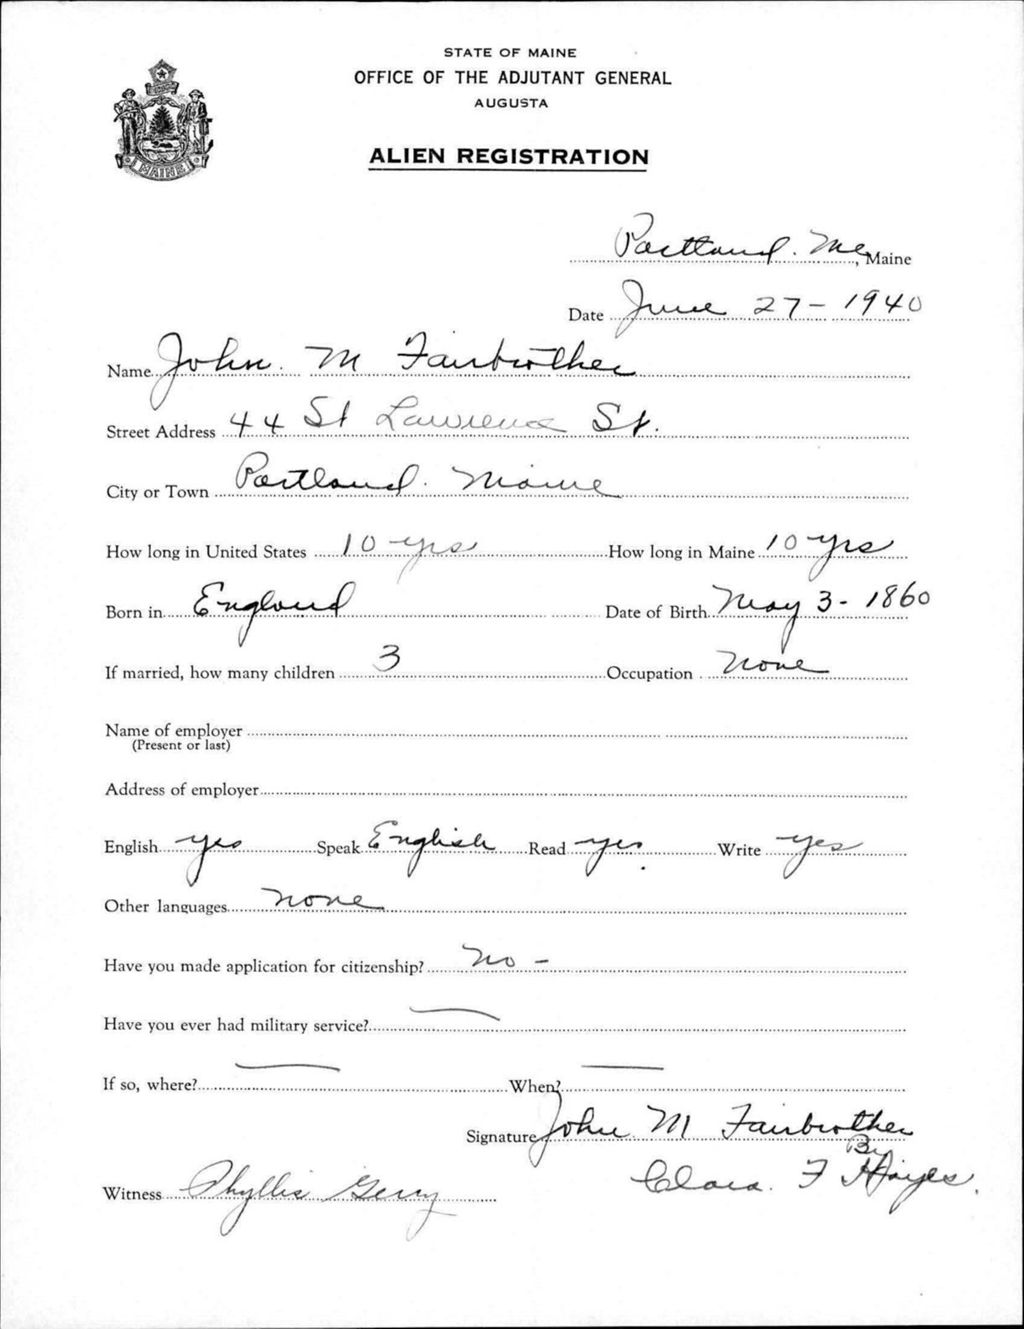 STATE OF MAINE
OFFICE OF THE ADJUTANT GENERAL
AUGUSTA
ALIEN REGISTRATION
MAINE
Portland. Me, Maine
Date June 27-1940
Name John. M Fairbrother
Street Address 44 St Lawrence St.
City or Town Portland. Maine
How long in United States 10 yrs How long in Maine 10 yrs
Born in England Date of Birth May 3-1860
If married, how many children 3 Occupation none
Name of employer
(Present or last)
Address of employer
English yes Speak English Read yes. Write yes
Other languages none
Have you made application for citizenship? No -
Have you ever had military service? —
If so, where? — When? —
Signature John M Fairbrother
By
Clara. F Hayes.
Witness Phyllis Gerry